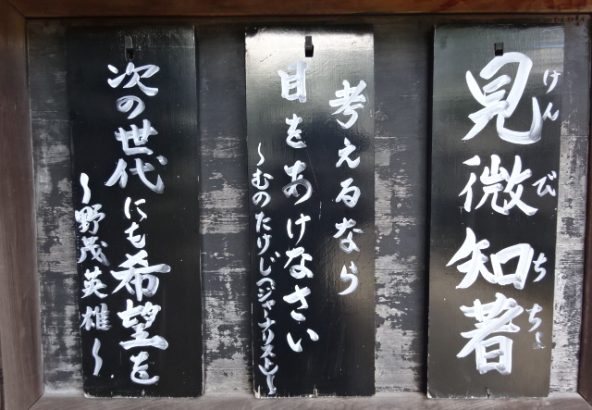 見微知著
けんびちちょ
考えるなら
目をあけなさい
～むのたけじ（ジャーナリスト）～
次の世代にも希望を
～野茂英雄～